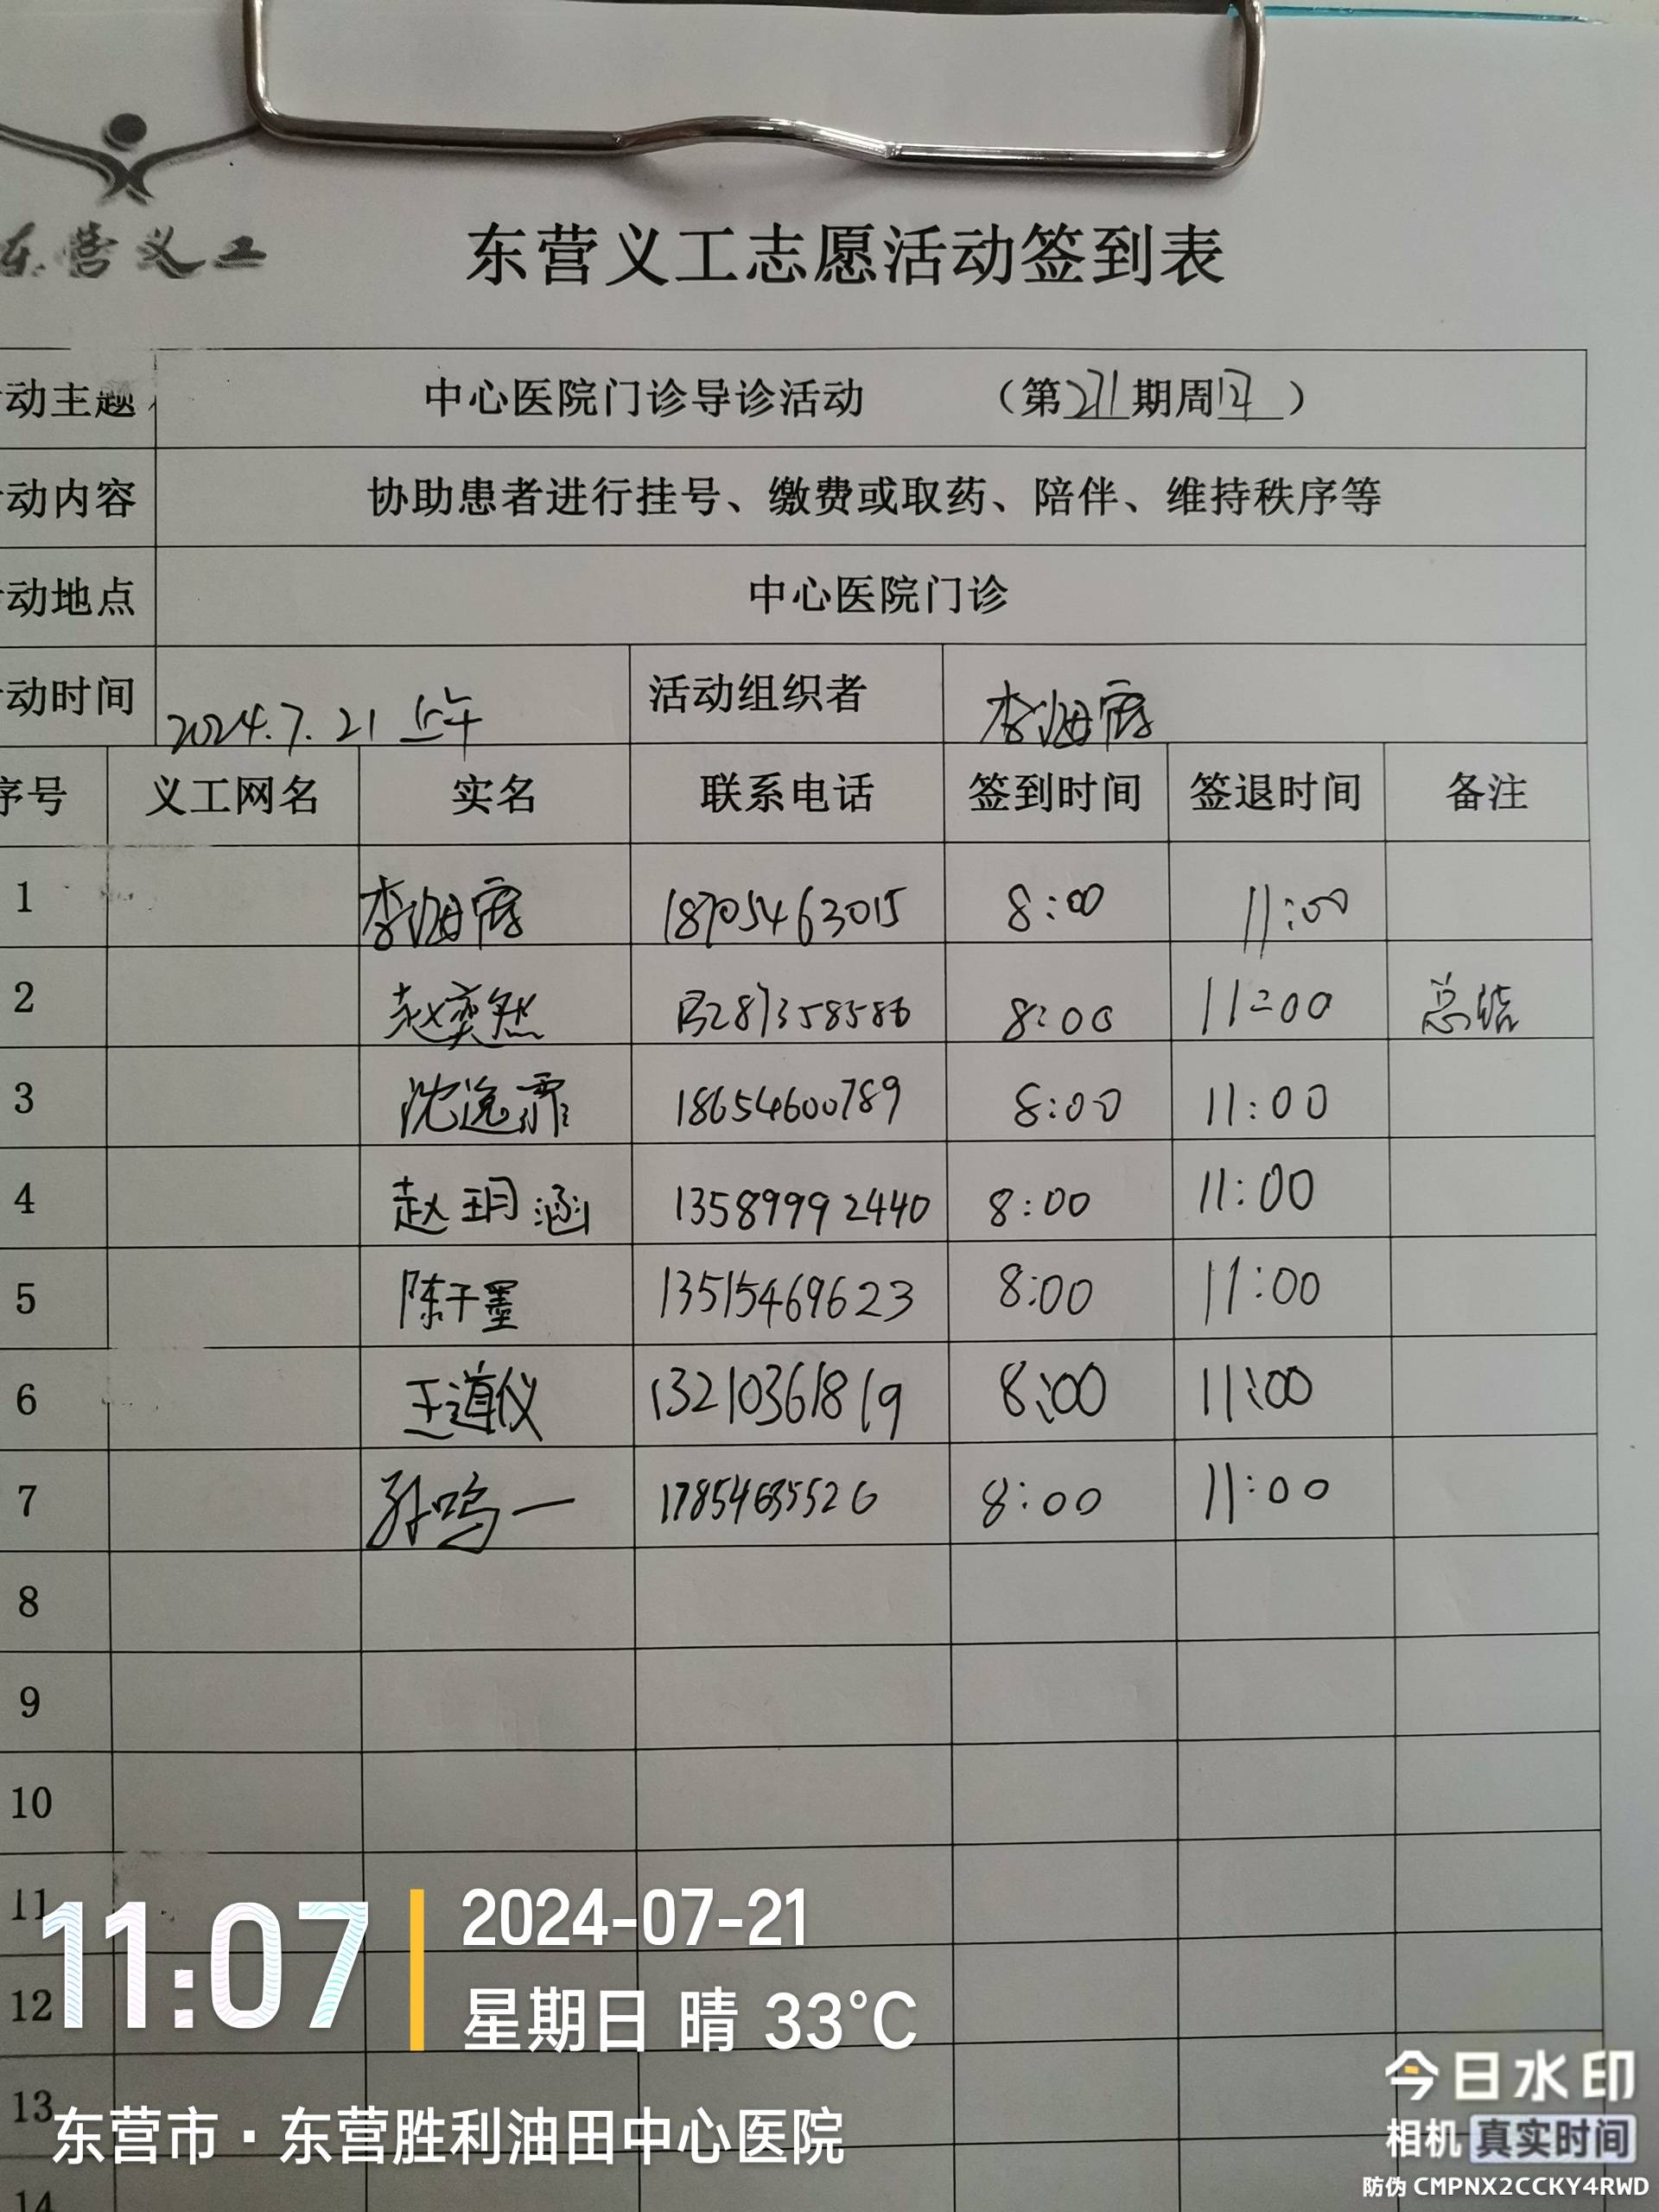 东营义工
东营义工志愿活动签到表
动主题 中心医院门诊导诊活动 （第271期周日）
动内容 协助患者进行挂号、缴费或取药、陪伴、维持秩序等
动地点 中心医院门诊
动时间 2024.7.21 上午 活动组织者 李海
序号 义工网名 实名 联系电话 签到时间 签退时间 备注
1 李海 18705463015 8:00 11:00
2 赵奕然 8:00 11:00 总结
3 沈逸霏 18654600789 8:00 11:00
4 赵玥涵 13589992440 8:00 11:00
5 陈于墨 13515469623 8:00 11:00
6 王道仪 13210361819 8:00 11:00
7 孙鸣一 8:00 11:00
8
9
10
11
12
13
14
11:07
2024-07-21
星期日 晴 33°C
东营市·东营胜利油田中心医院
今日水印
相机 真实时间
防伪 CMPNX2CCKY4RWD